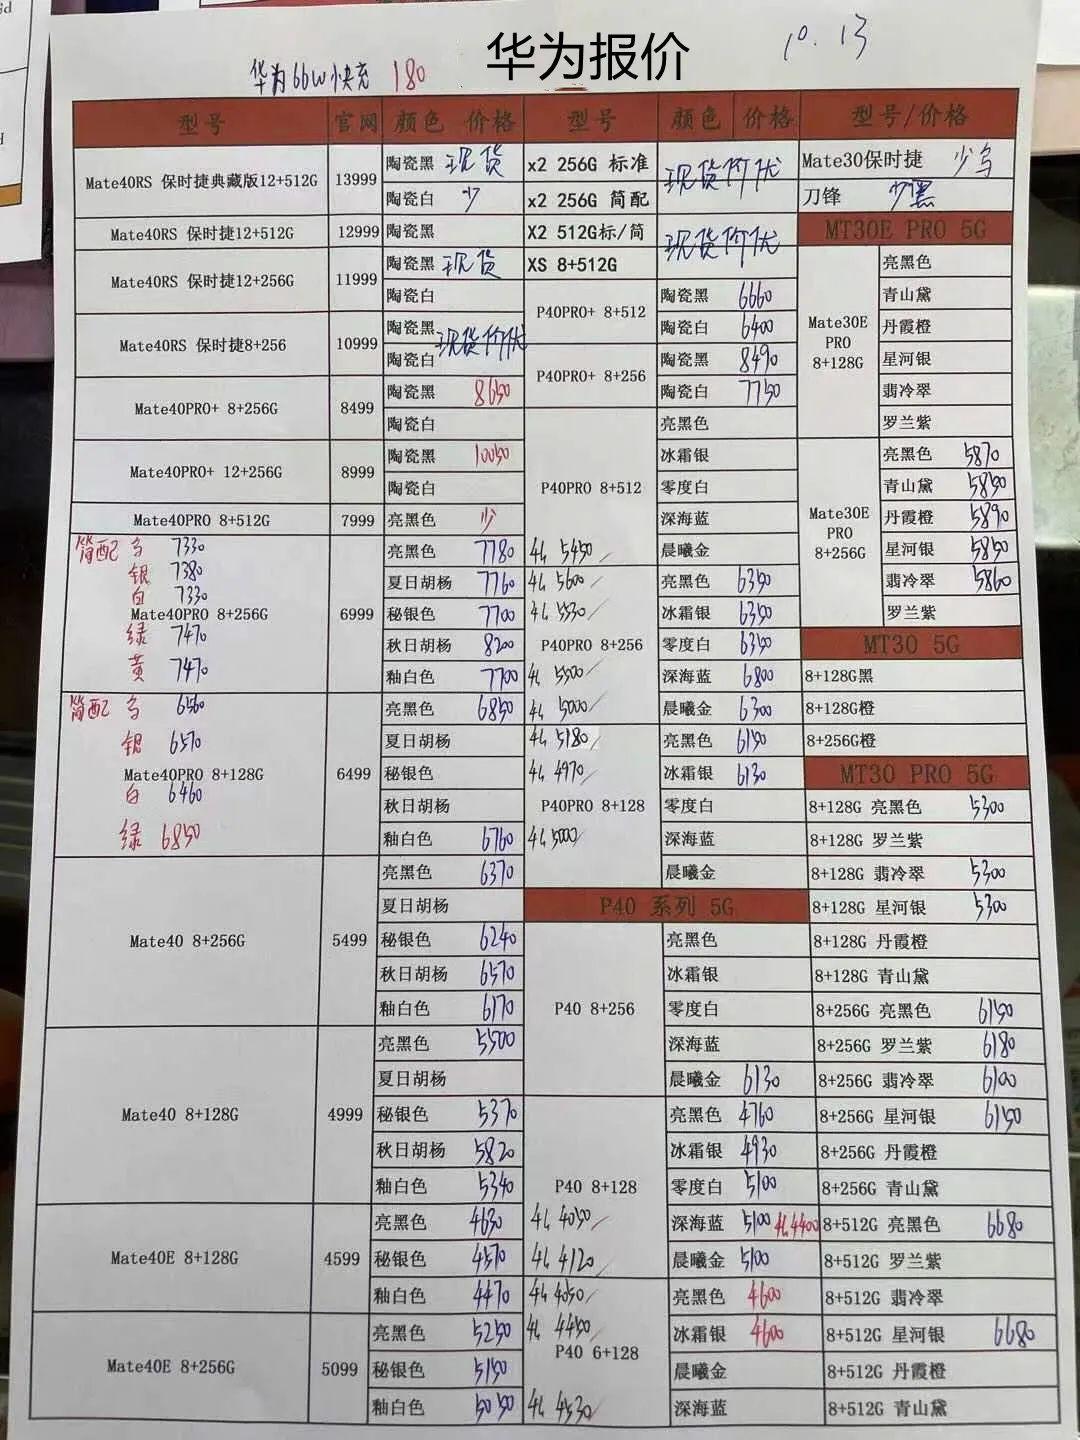 华为报价
10.13
华为66W快充 180
型号 官网 颜色 价格 型号 颜色 价格 型号/价格
Mate40RS 保时捷典藏版12+512G 13999
陶瓷黑 现货
陶瓷白 少
Mate40RS 保时捷12+512G 12999
陶瓷黑
Mate40RS 保时捷12+256G 11999
陶瓷黑 现货
陶瓷白
Mate40RS 保时捷8+256 10999
陶瓷黑 现货价优
陶瓷白
Mate40PRO+ 8+256G 8499
陶瓷黑 8650
陶瓷白
Mate40PRO+ 12+256G 8999
陶瓷黑 10050
陶瓷白
Mate40PRO 8+512G 7999
亮黑色 少
简配 乌 7330
银 7380
白 7330
Mate40PRO 8+256G 6999
绿 7470
黄 7470
亮黑色 7780
夏日胡杨 7760
秘银色 7700
秋日胡杨 8200
釉白色 7700
简配 乌 6560
银 6570
Mate40PRO 8+128G 6499
白 6460
绿 6850
亮黑色 6850
夏日胡杨
秘银色
秋日胡杨
釉白色 6760
Mate40 8+256G 5499
亮黑色 6370
夏日胡杨
秘银色 6240
秋日胡杨 6570
釉白色 6170
Mate40 8+128G 4999
亮黑色 5500
夏日胡杨
秘银色 5370
秋日胡杨 5820
釉白色 5340
Mate40E 8+128G 4599
亮黑色 4630
秘银色 4570
釉白色 4470
Mate40E 8+256G 5099
亮黑色 5250
秘银色 5150
釉白色 5050
x2 256G 标准 现货价优
x2 256G 简配
X2 512G标/简 现货价优
XS 8+512G
P40PRO+ 8+512
陶瓷黑 6660
陶瓷白 6400
P40PRO+ 8+256
陶瓷黑 8490
陶瓷白 7750
P40PRO 8+512
亮黑色
冰霜银
零度白
深海蓝
4G 5450 晨曦金
P40PRO 8+256
4G 5600 亮黑色 6350
4G 5530 冰霜银 6350
零度白 6350
4G 5500 深海蓝 6800
4G 5000 晨曦金 6300
P40PRO 8+128
4G 5180 亮黑色 6150
4G 4970 冰霜银 6130
零度白
4G 5000 深海蓝
晨曦金
P40 系列 5G
P40 8+256
亮黑色
冰霜银
零度白
深海蓝
晨曦金 6130
P40 8+128
亮黑色 4760
冰霜银 4930
零度白 5100
4G 4050 深海蓝 5100 4G 4400
4G 4120 晨曦金 5100
P40 6+128
4G 4050 亮黑色 4600
4G 4450 冰霜银 4600
晨曦金
4G 4530 深海蓝
Mate30保时捷 少乌
刀锋 少黑
MT30E PRO 5G
Mate30E PRO 8+128G
亮黑色
青山黛
丹霞橙
星河银
翡冷翠
罗兰紫
Mate30E PRO 8+256G
亮黑色 5870
青山黛 5850
丹霞橙 5890
星河银 5850
翡冷翠 5860
罗兰紫
MT30 5G
8+128G黑
8+128G橙
8+256G橙
MT30 PRO 5G
8+128G 亮黑色 5300
8+128G 罗兰紫
8+128G 翡冷翠 5300
8+128G 星河银 5300
8+128G 丹霞橙
8+128G 青山黛
8+256G 亮黑色 6150
8+256G 罗兰紫 6180
8+256G 翡冷翠 6100
8+256G 星河银 6150
8+256G 丹霞橙
8+256G 青山黛
8+512G 亮黑色 6680
8+512G 罗兰紫
8+512G 翡冷翠
8+512G 星河银 6680
8+512G 丹霞橙
8+512G 青山黛